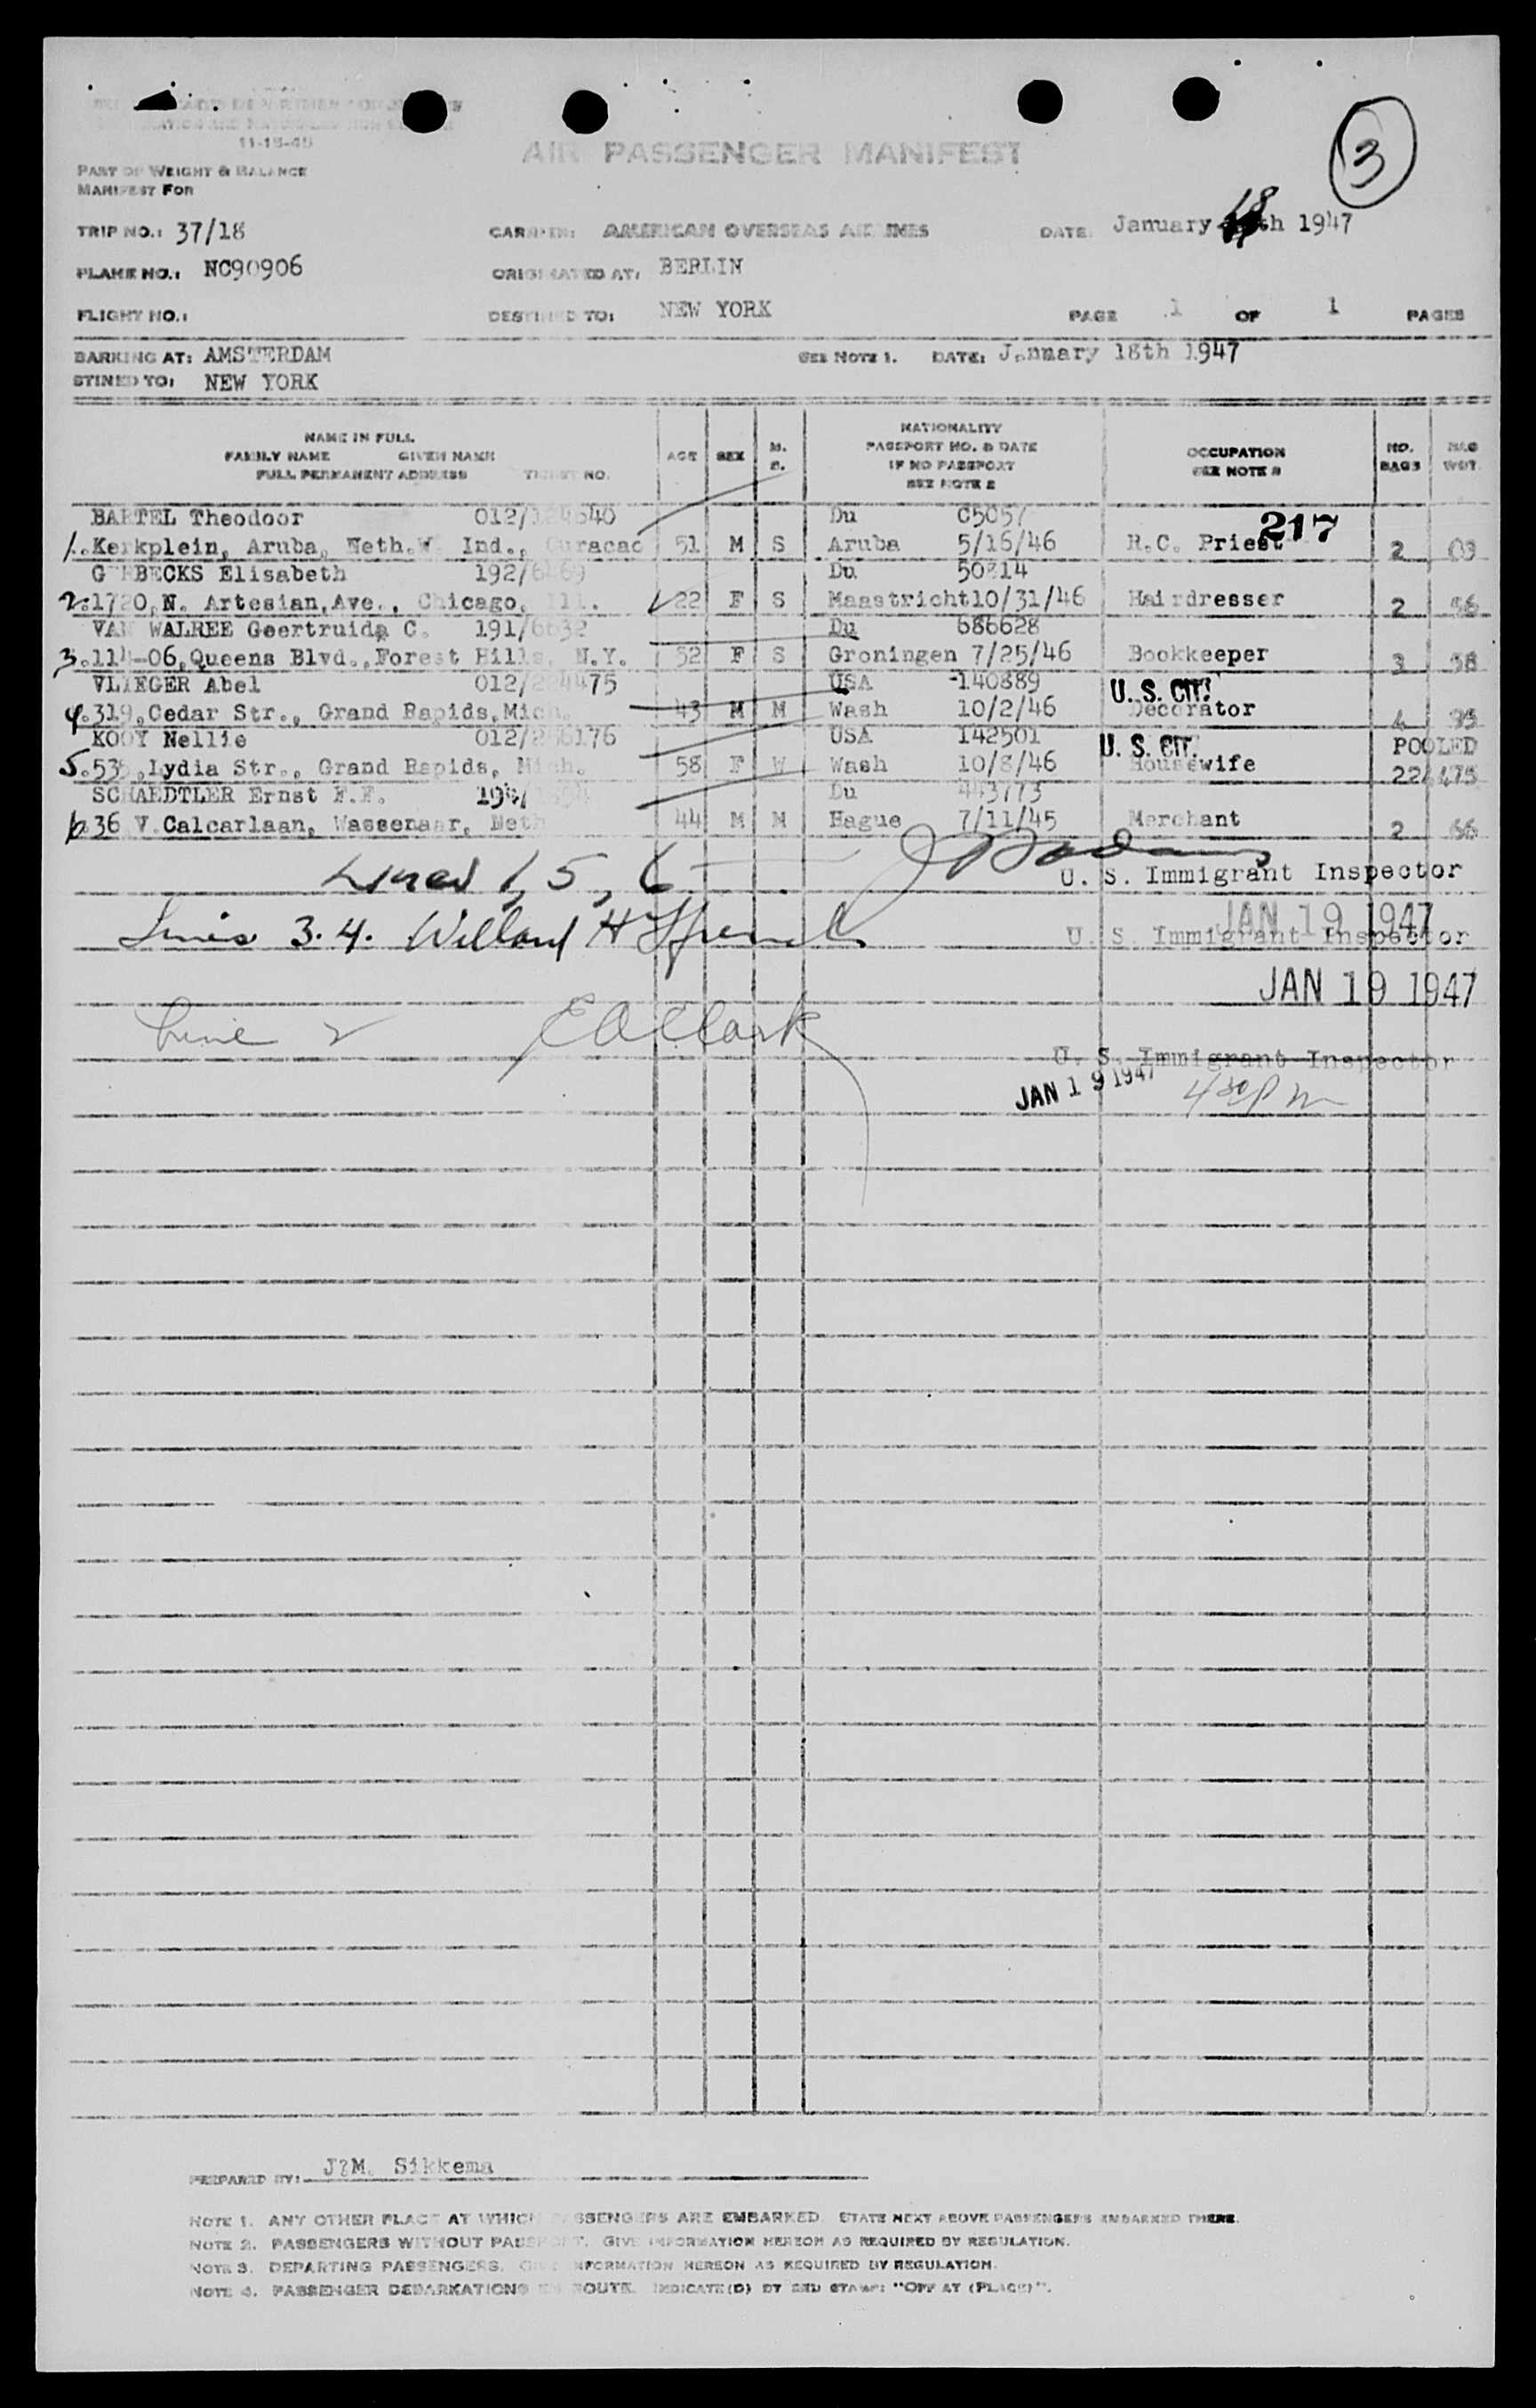 11-15-45
AIR PASSENGER MANIFEST
3
PART OF WEIGHT & BALANCE
MANIFEST FOR
TRIP NO.: 37/18 CARRIER: AMERICAN OVERSEAS AIRLINES DATE: January 18th 1947
PLANE NO.: NC90906 ORIGINATED AT: BERLIN
FLIGHT NO.: DESTINED TO: NEW YORK PAGE 1 OF 1 PAGES
BARKING AT: AMSTERDAM SEE NOTE 1. DATE: January 18th 1947
STINED TO: NEW YORK
NAME IN FULL
FAMILY NAME GIVEN NAME
FULL PERMANENT ADDRESS TICKET NO.
AGE SEX M. S.
NATIONALITY
PASSPORT NO. & DATE
IF NO PASSPORT
SEE NOTE 2
OCCUPATION
SEE NOTE 3
NO. BAGS
BAG WGT.
BARTEL Theodoor Du C5057
217
1. Kerkplein, Aruba, Neth.W. Ind., Curacao 51 M S Aruba 5/16/46 R.C. Priest 2
Elisabeth Du 50814
2. 1720,N. Artesian,Ave., Chicago, Ill. 22 F S Maastricht10/31/46 Hairdresser 2
VAN WALREE Geertruida C. 191/6632 Du 686628
3. 114-06,Queens Blvd.,Forest Hills, N.Y. 52 F S Groningen 7/25/46 Bookkeeper 3 58
VLIEGER Abel USA 140889 U.S. CIT.
4. 319,Cedar Str., Grand Rapids,Mich. 43 M M Wash 10/2/46 Decorator 4
KOOY Nellie USA 142501 U.S. CIT. POOLED
5. 535,Lydia Str., Grand Rapids, Mich. 58 F W Wash 10/8/46 Housewife
SCHAEDTLER Ernst F.F. Du 443773
6. 36 V.Calcarlaan, Wassenaar, Neth 44 M M Hague 7/11/45 Merchant 2 66
Lines 1, 5, 6
U. S. Immigrant Inspector
JAN 19 1947
Lines 3. 4. Willard H French U. S. Immigrant Inspector
JAN 19 1947
Line 2 E A Clark
U. S. Immigrant Inspector
JAN 19 1947 4 30 pm
PREPARED BY: J?M. Sikkema
NOTE 1. ANY OTHER PLACE AT WHICH PASSENGERS ARE EMBARKED. STATE NEXT ABOVE PASSENGERS EMBARKED THERE.
NOTE 2. PASSENGERS WITHOUT PASSPORT. GIVE INFORMATION HEREON AS REQUIRED BY REGULATION.
NOTE 3. DEPARTING PASSENGERS. GIVE INFORMATION HEREON AS REQUIRED BY REGULATION.
NOTE 4. PASSENGER DEBARKATIONS EN ROUTE. INDICATE(D) BY RED STAMP: "OFF AT (PLACE)".